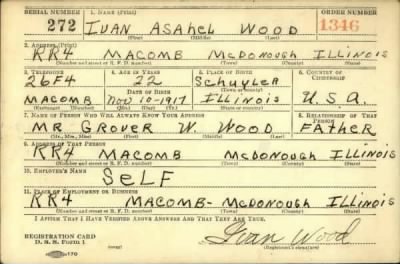 SERIAL NUMBER 1. NAME (Print) ORDER NUMBER
272 IVAN ASAHEL WOOD 1346
(First) (Middle) (Last)
2. ADDRESS (Print)
RR4 MACOMB McDONOUGH ILLINOIS
(Number and street or R. F. D. number) (Town) (County) (State)
3. TELEPHONE 4. AGE IN YEARS 5. PLACE OF BIRTH 6. COUNTRY OF CITIZENSHIP
26F4 22 Schuyler
DATE OF BIRTH (Town or county)
MACOMB Nov 10-1917 ILLINOIS U.S.A.
(Exchange) (Number) (Mo.) (Day) (Yr.) (State or country)
7. NAME OF PERSON WHO WILL ALWAYS KNOW YOUR ADDRESS 8. RELATIONSHIP OF THAT PERSON
MR GROVER W. WOOD FATHER
(Mr., Mrs., Miss) (First) (Middle) (Last)
9. ADDRESS OF THAT PERSON
RR4 MACOMB McDONOUGH ILLINOIS
(Number and street or R. F. D. number) (Town) (County) (State)
10. EMPLOYER'S NAME
SELF
11. PLACE OF EMPLOYMENT OR BUSINESS
RR4 MACOMB- McDONOUGH ILLINOIS
(Number and street or R. F. D. number) (Town) (County) (State)
I AFFIRM THAT I HAVE VERIFIED ABOVE ANSWERS AND THAT THEY ARE TRUE.
REGISTRATION CARD
D. S. S. Form 1 Ivan Wood
(Registrant's signature)